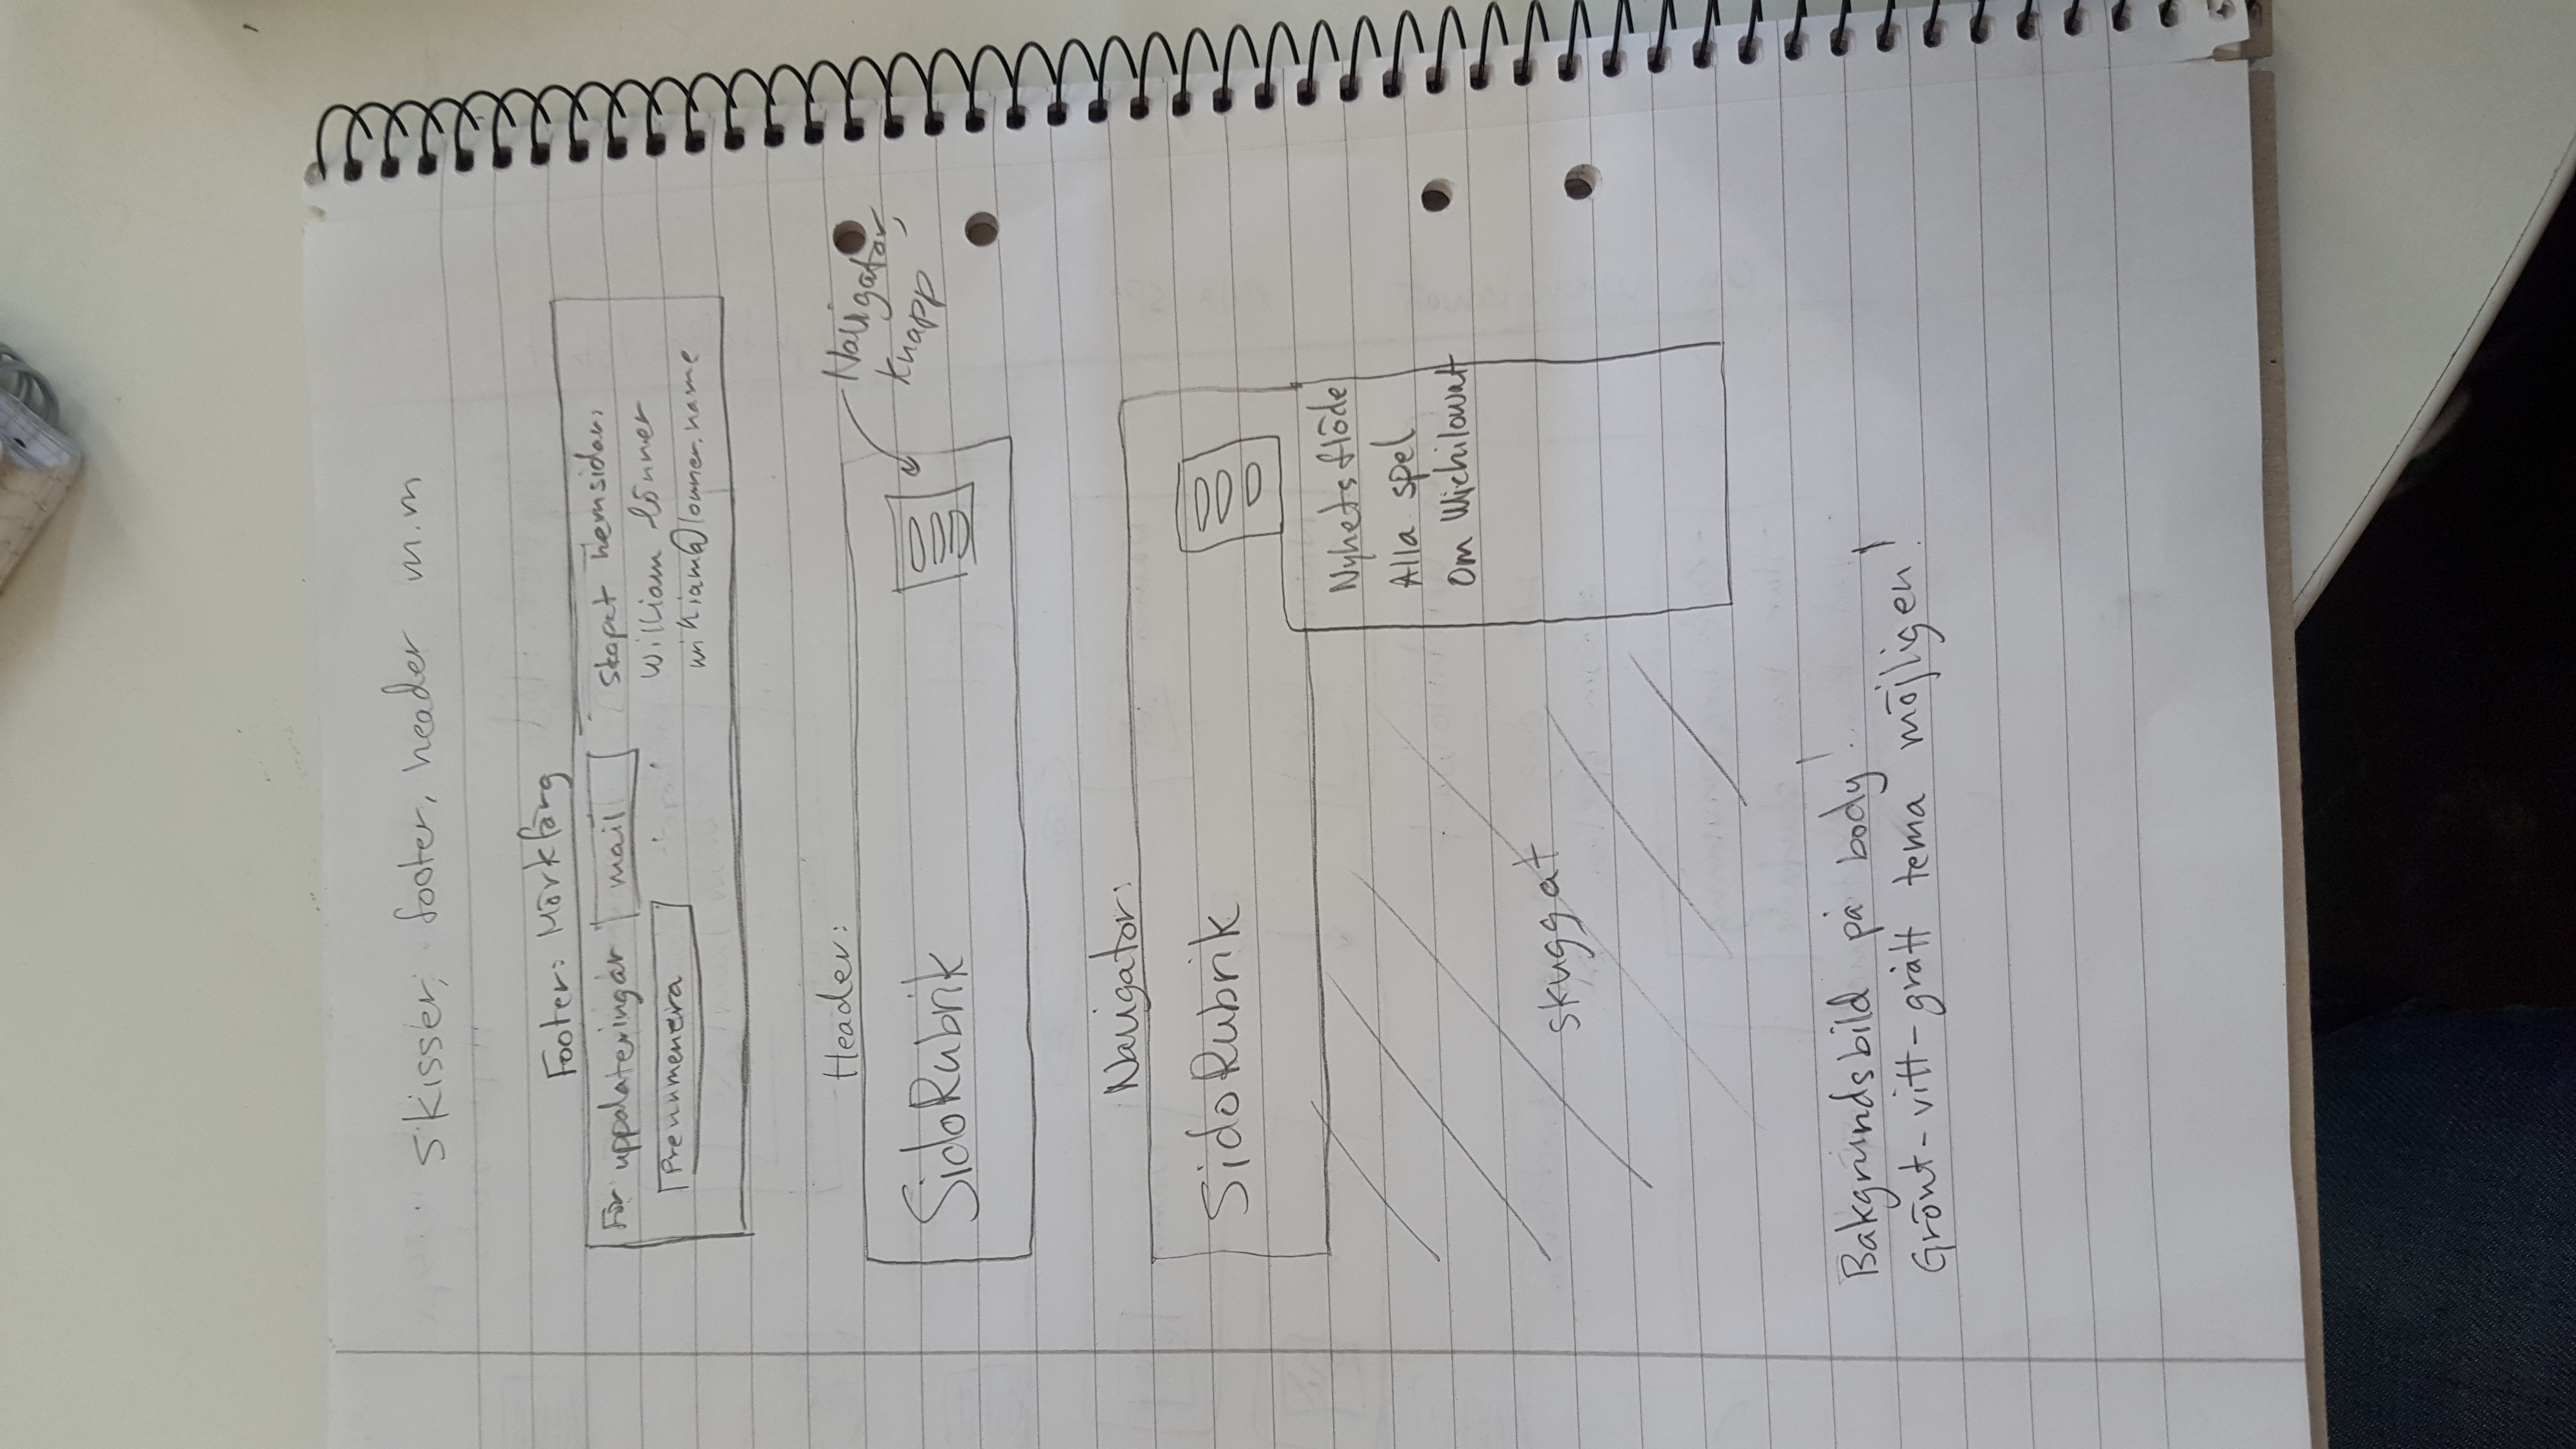 skisser, footer, header m.m
Footer: Mörkfärg
För uppdateringar mail
Prenumenera
Skapat hemsidan:
William lönner
william@lonner.name
Header:
SidoRubrik
Navigator,
knapp
Navigator:
SidoRubrik
Nyhetsflöde
Alla spel
Om Wichilowatt
skuggat
Bakgrundsbild på body!
Grönt-vitt-grått tema möjligen!